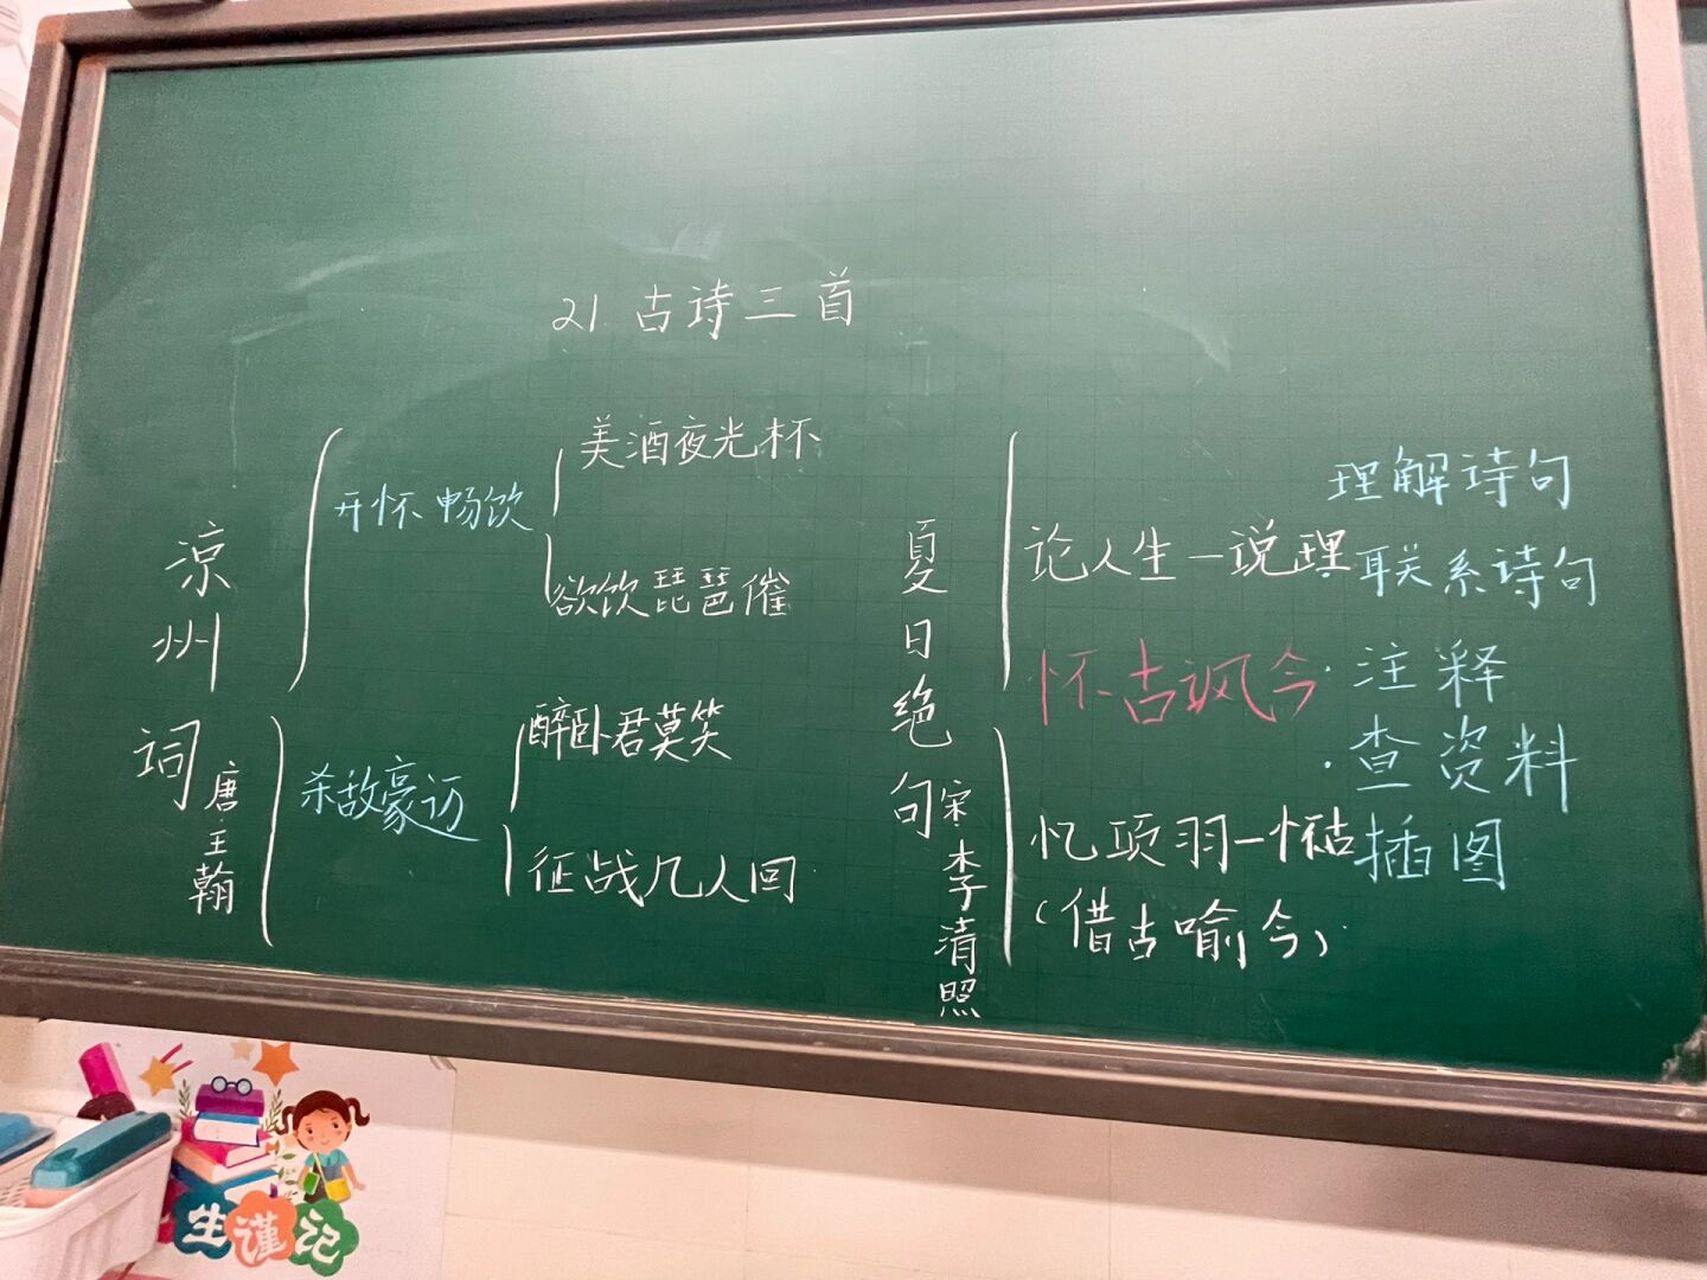 21.古诗三首
凉州词
唐·王翰
开怀畅饮
美酒夜光杯
欲饮琵琶催
杀敌豪迈
醉卧君莫笑
征战几人回
夏日绝句
宋·李清照
论人生—说理
怀古讽今
忆项羽—怀古
(借古喻今)
理解诗句
·联系诗句
·注释
·查资料
插图
生谨记